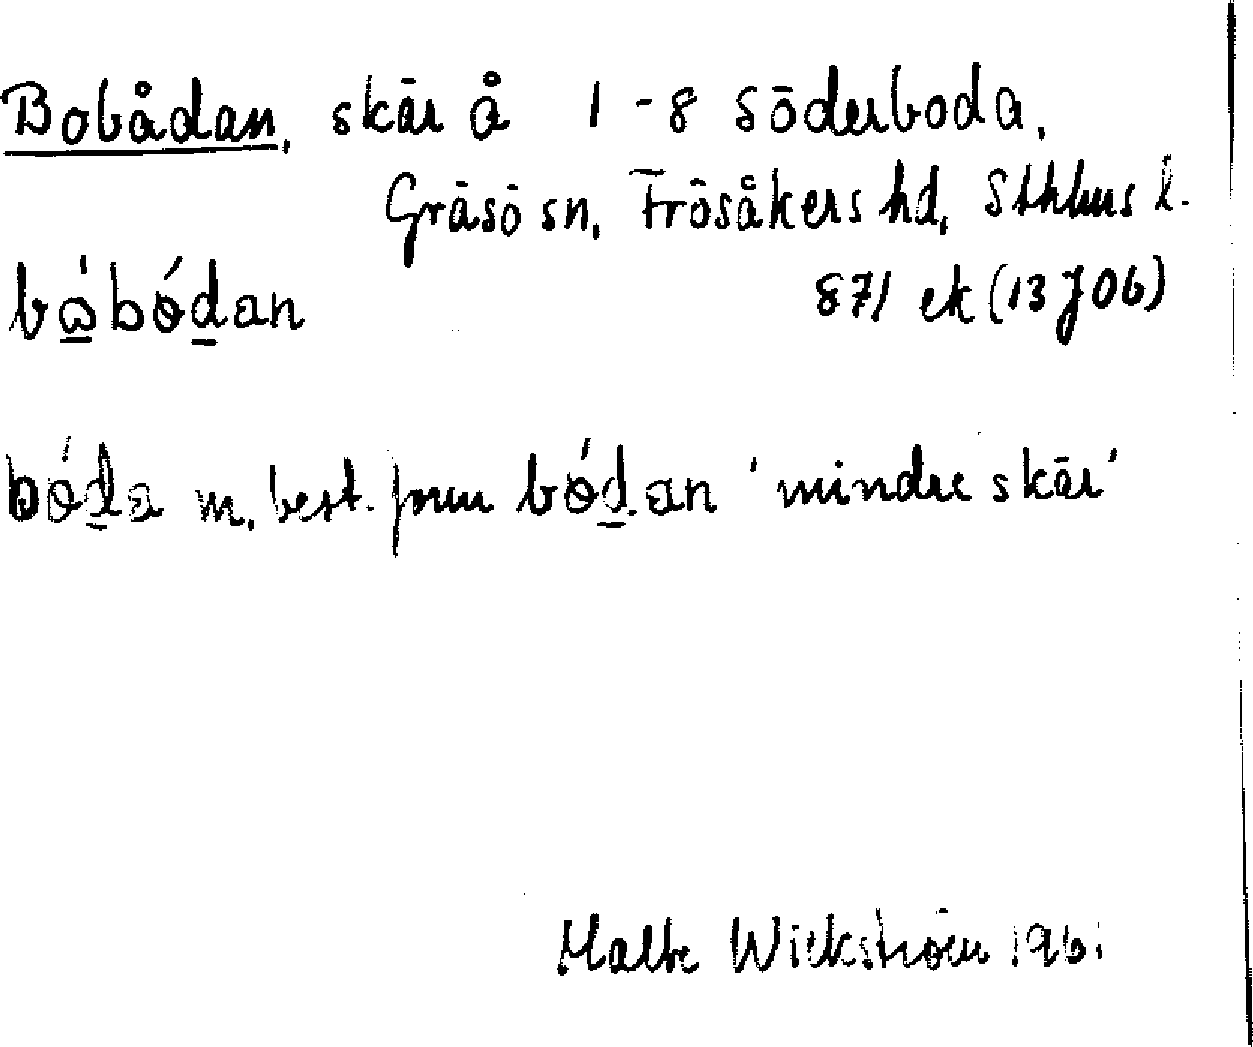 Bobådan, skär å 1-8 Söderboda,
Gräsö sn, Frösåkers hd, Sthlms l.
bὼ̱bó̱dan 871 ek (13 J 0b)
bó̱da m. best. form bó̱dan 'mindre skär'
Malte Wickström 1961